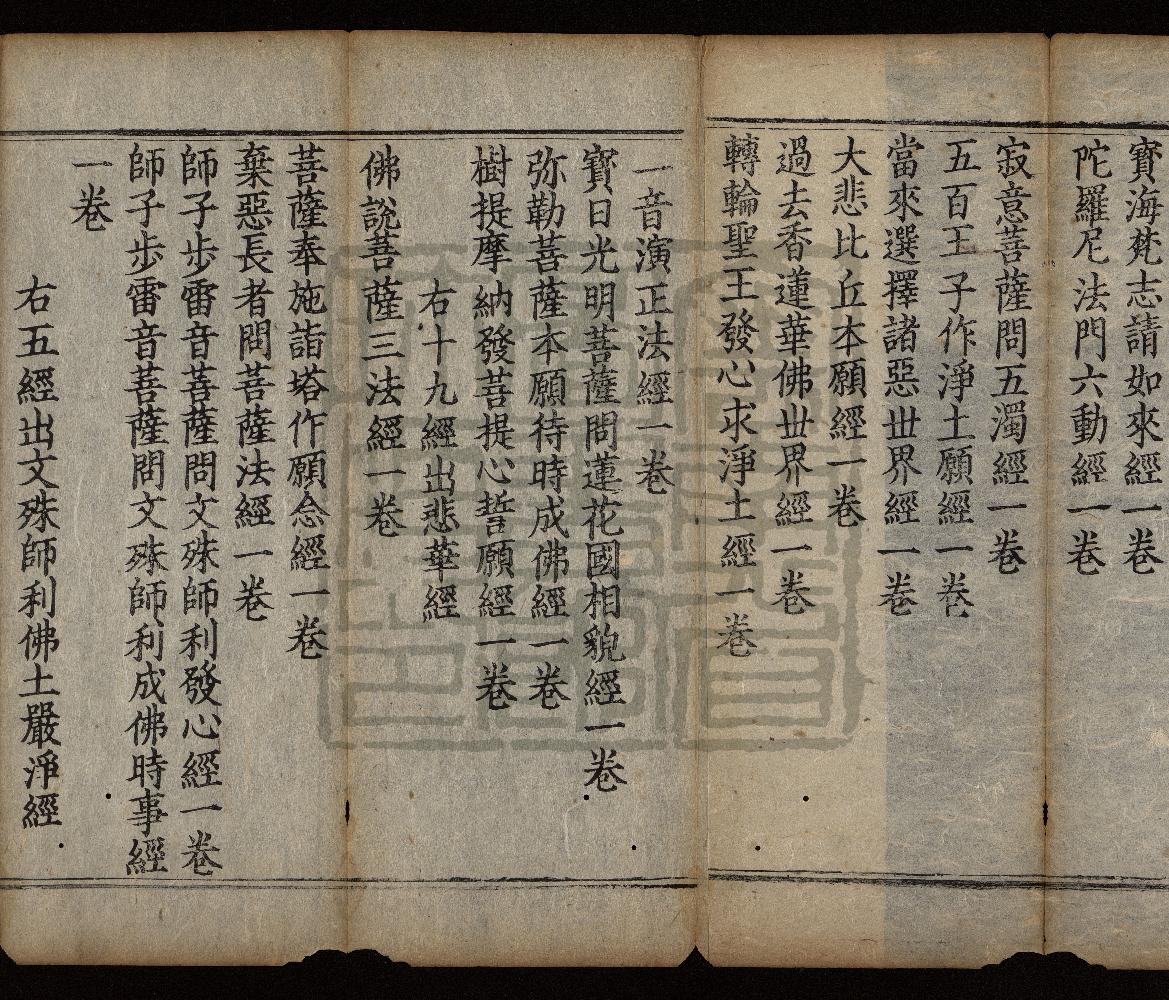 寶海梵志請如來經一卷
陀羅尼法門六動經一卷
寂意菩薩問五濁經一卷
五百王子作淨土願經一卷
當來選擇諸惡世界經一卷
大悲比丘本願經一卷
過去香蓮華佛世界經一卷
轉輪聖王發心求淨土經一卷
一音演正法經一卷
寶日光明菩薩問蓮花國相貌經一卷
弥勒菩薩本願待時成佛經一卷
樹提摩納發菩提心誓願經一卷
右十九經出悲華經
佛說菩薩三法經一卷
菩薩奉施詣塔作願念經一卷
棄惡長者問菩薩法經一卷
師子步雷音菩薩問文殊師利發心經一卷
師子步雷音菩薩問文殊師利成佛時事經
一卷
右五經出文殊師利佛土嚴淨經